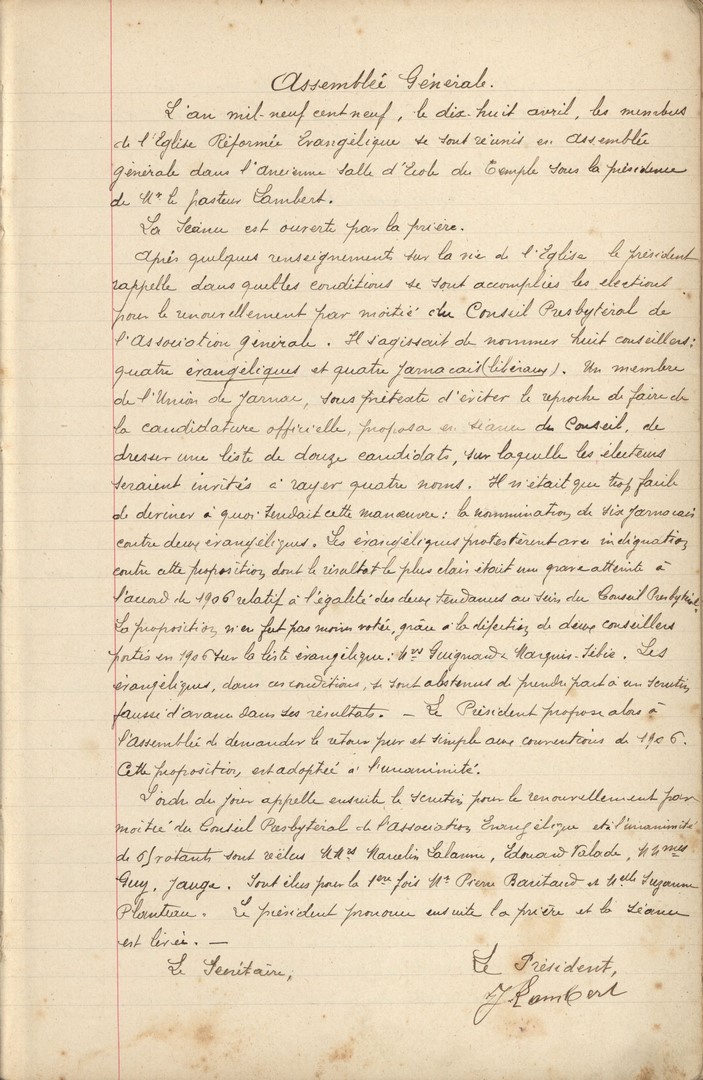 Assemblée Générale.
L'an mil-neuf cent neuf, le dix-huit avril, les membres
de l'Eglise Réformée Evangélique se sont réunis en Assemblée
générale dans l'ancienne salle d'Ecole du Temple sous la présidence
de Mr le pasteur Lambert.
La Séance est ouverte par la prière.
Après quelques renseignements sur la vie de l'Eglise le président
rappelle dans quelles conditions se sont accomplies les élections
pour le renouvellement par moitié du Conseil Presbytéral de
l'Association générale. Il s'agissait de nommer huit conseillers:
quatre évangéliques et quatre Jarnacais (libéraux). Un membre
de l'Union de Jarnac, sous prétexte d'éviter le reproche de faire de
la candidature officielle, proposa en séance du Conseil, de
dresser une liste de douze candidats, sur laquelle les électeurs
seraient invités à rayer quatre noms. Il n'était que trop facile
de deviner à quoi tendait cette manœuvre: la nommination de six Jarnacais
contre deux évangéliques. Les évangéliques protestèrent avec indignation
contre cette proposition dont le résultat le plus clair était une grave atteinte à
l'accord de 1906 relatif à l'égalité des deux tendances au sein du Conseil Presbytéral.
La proposition n'en fut pas moins votée, grâce à la défection de deux conseillers
portés en 1906 sur la liste évangélique: Mrs Guignard & Marquis-Sébie. Les
évangéliques, dans ces conditions, se sont abstenus de prendre part à un scrutin
faussé d'avance dans ses résultats. — Le Président propose alors à
l'Assemblée de demander le retour pur et simple aux conventions de 1906.
Cette proposition est adoptée à l'unanimité.
L'ordre du jour appelle ensuite le scrutin pour le renouvellement par
moitié du Conseil Presbytéral de l'Association Evangélique et à l'unanimité
de votants sont réélus MMrs Marcelin Lalanne, Edouard Valade, MMmes
Guy, Jauge. Sont élus pour la 1ère fois Mr Pierre Baritaud et Melle Suzanne
Planteau. Le président prononce ensuite la prière et la séance
est levée. —
Le Secrétaire,
Le Président,
J Lambert